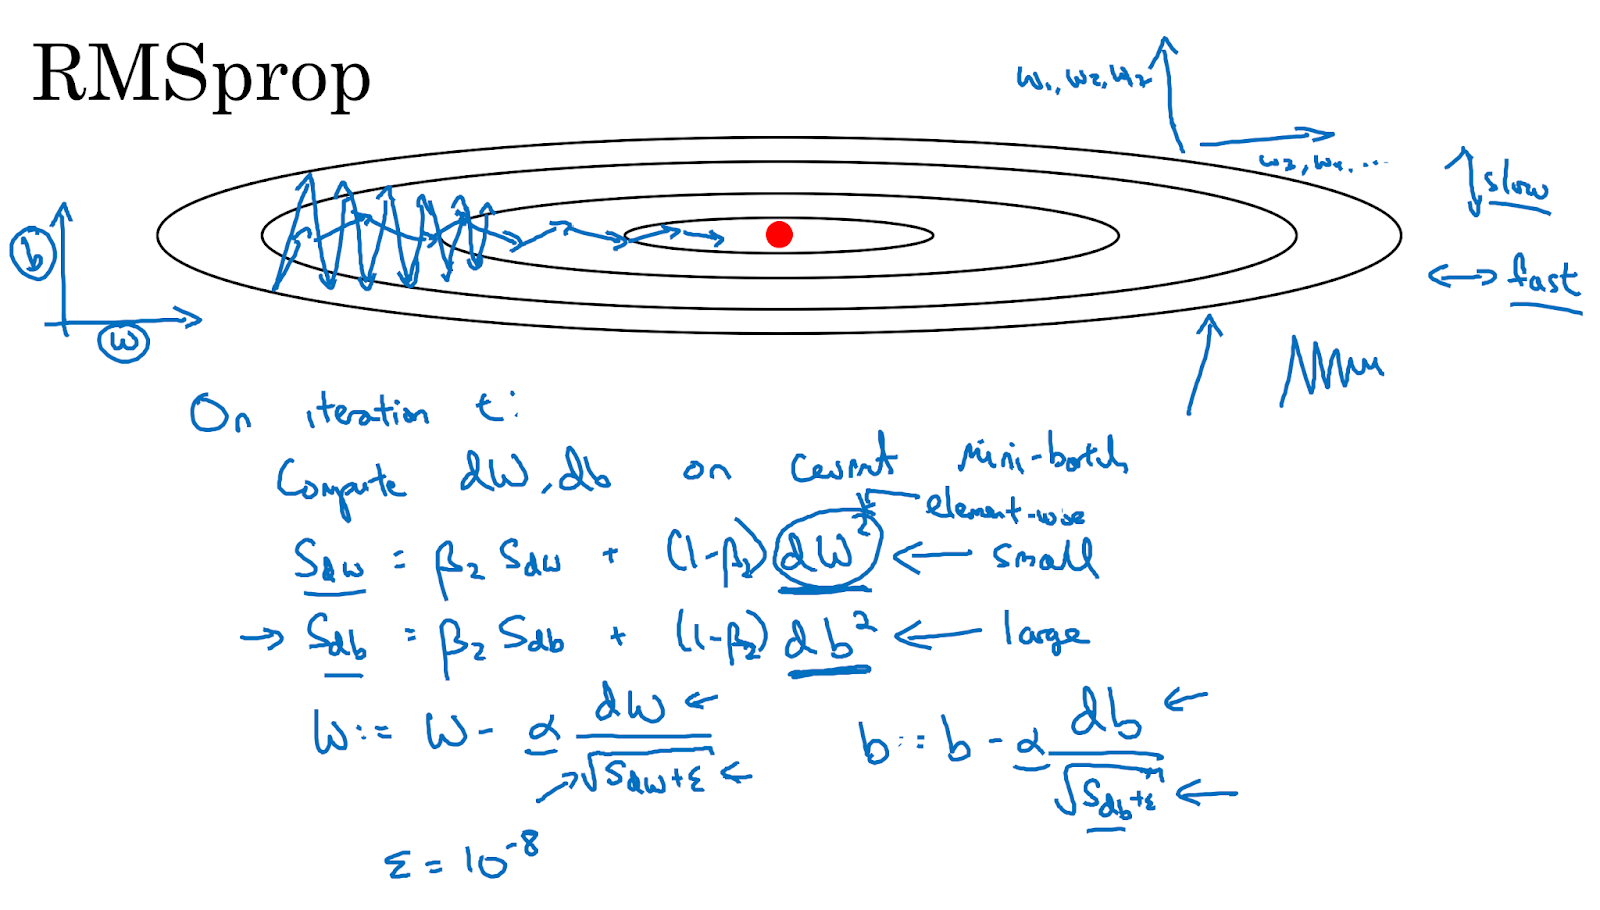 RMSprop
w₁, w₂, w₇
w₃, w₄, ...
slow
fast
b
w
On iteration t:
Compute dW, db on current mini-batch
element-wise
S_dw = β₂ S_dw + (1-β₂) dW² ← small
→ S_db = β₂ S_db + (1-β₂) db² ← large
W := W - α dW / √(S_dw + ε) ←
b := b - α db / √(S_db + ε) ←
ε = 10⁻⁸